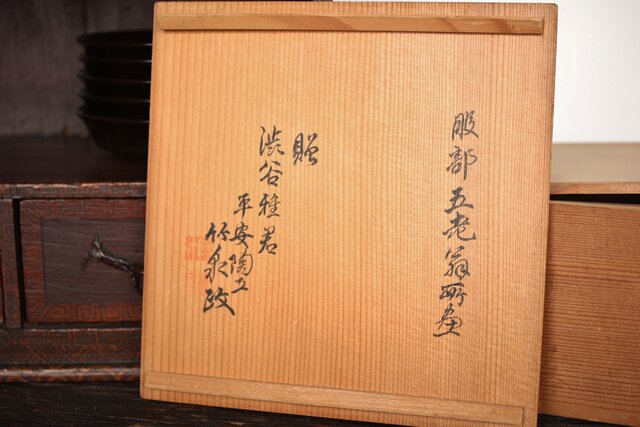 服部五老翁所画
贈
渋谷雅君
平安陶工
竹泉政